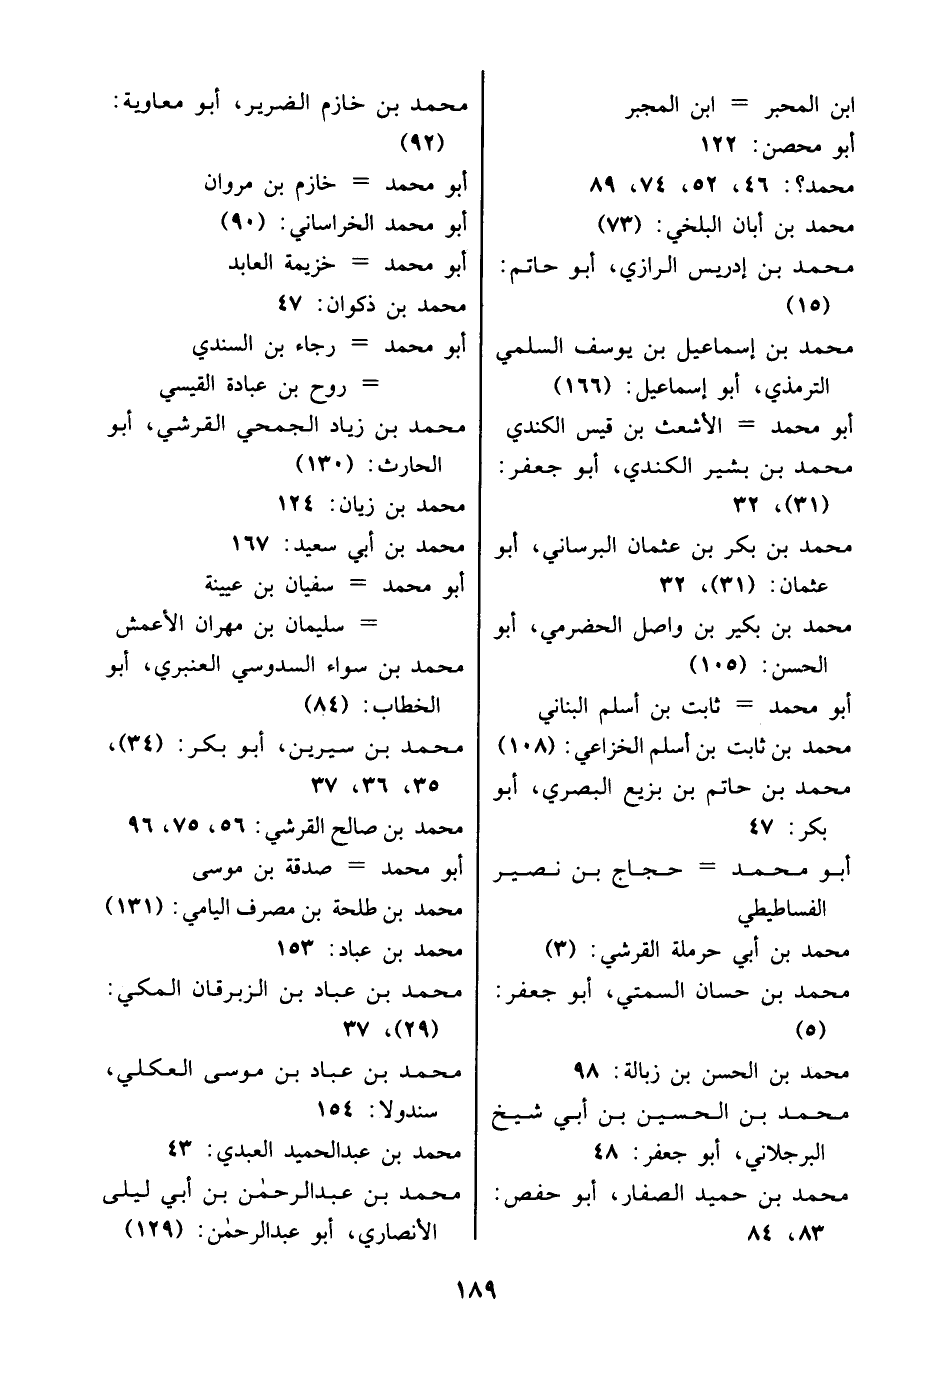 ابن المحبر = ابن المجبر
أبو محصن: ١٢٢
محمد؟: ٤٦، ٥٢، ٧٤، ٨٩
محمد بن أبان البلخي: (٧٣)
محمد بن إدريس الرازي، أبو حاتم:
(١٥)
محمد بن إسماعيل بن يوسف السلمي
الترمذي، أبو إسماعيل: (١٦٦)
أبو محمد = الأشعث بن قيس الكندي
محمد بن بشير الكندي، أبو جعفر:
(٣١)، ٣٢
محمد بن بكر بن عثمان البرساني، أبو
عثمان: (٣١)، ٣٢
محمد بن بكير بن واصل الحضرمي، أبو
الحسن: (١٠٥)
أبو محمد = ثابت بن أسلم البناني
محمد بن ثابت بن أسلم الخزاعي: (١٠٨)
محمد بن حاتم بن بزيع البصري، أبو
بكر: ٤٧
أبو محمد = حجاج بن نصير
الفساطيطي
محمد بن أبي حرملة القرشي: (٣)
محمد بن حسان السمتي، أبو جعفر:
(٥)
محمد بن الحسن بن زبالة: ٩٨
محمد بن الحسين بن أبي شيخ
البرجلاني، أبو جعفر: ٤٨
محمد بن حميد الصفار، أبو حفص:
٨٣، ٨٤
محمد بن خازم الضرير، أبو معاوية:
(٩٢)
أبو محمد = خازم بن مروان
أبو محمد الخراساني: (٩٠)
أبو محمد = خزيمة العابد
محمد بن ذكوان: ٤٧
أبو محمد = رجاء بن السندي
= روح بن عبادة القيسي
محمد بن زياد الجمحي القرشي، أبو
الحارث: (١٣٠)
محمد بن زيان: ١٢٤
محمد بن أبي سعيد: ١٦٧
أبو محمد = سفيان بن عيينة
= سليمان بن مهران الأعمش
محمد بن سواء السدوسي العنبري، أبو
الخطاب: (٨٤)
محمد بن سيرين، أبو بكر: (٣٤)،
٣٥، ٣٦، ٣٧
محمد بن صالح القرشي: ٥٦، ٧٥، ٩٦
أبو محمد = صدقة بن موسى
محمد بن طلحة بن مصرف اليامي: (١٣١)
محمد بن عباد: ١٥٣
محمد بن عباد بن الزبرقان المكي:
(٢٩)، ٣٧
محمد بن عباد بن موسى العكلي،
سندولا: ١٥٤
محمد بن عبدالحميد العبدي: ٤٣
محمد بن عبدالرحمٰن بن أبي ليلى
الأنصاري، أبو عبدالرحمٰن: (١٢٩)
١٨٩